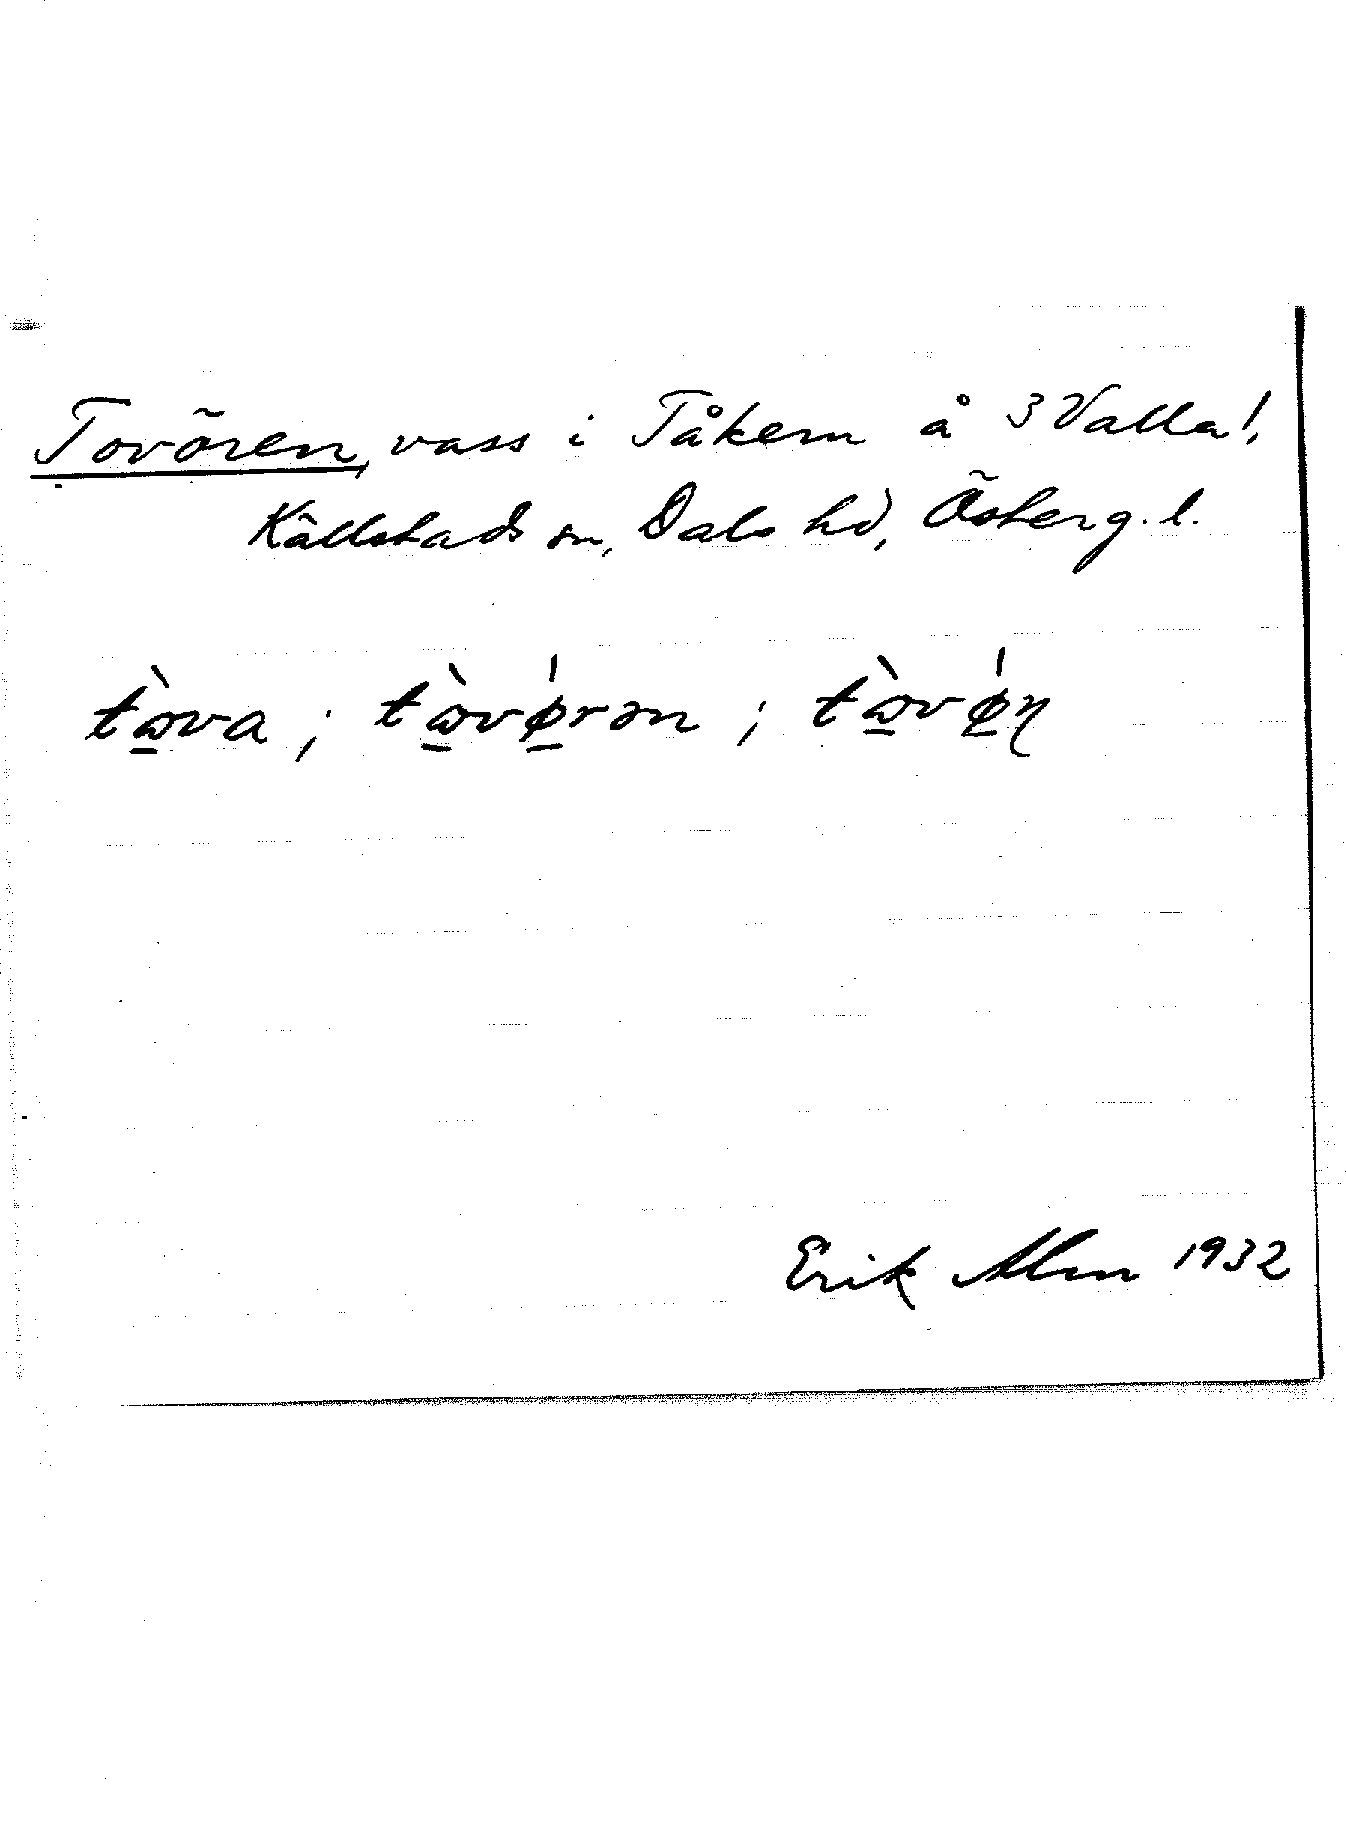 Tovören, vass i Tåkern å 3 Valla!,
Källstads sn, Dals hd, Österg. l.
tὼ̱va ; tὼ̱vǿ̱rən ; tὼ̱vǿ̱η
Erik Alm 1932